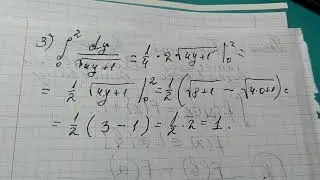 3) ∫₀² dy/√(4y+1) = 1/4 · 2√(4y+1) |₀² =
= 1/2 √(4y+1) |₀² = 1/2 (√(8+1) − √(4·0+1)) =
= 1/2 (3 − 1) = 1/2 · 2 = 1.